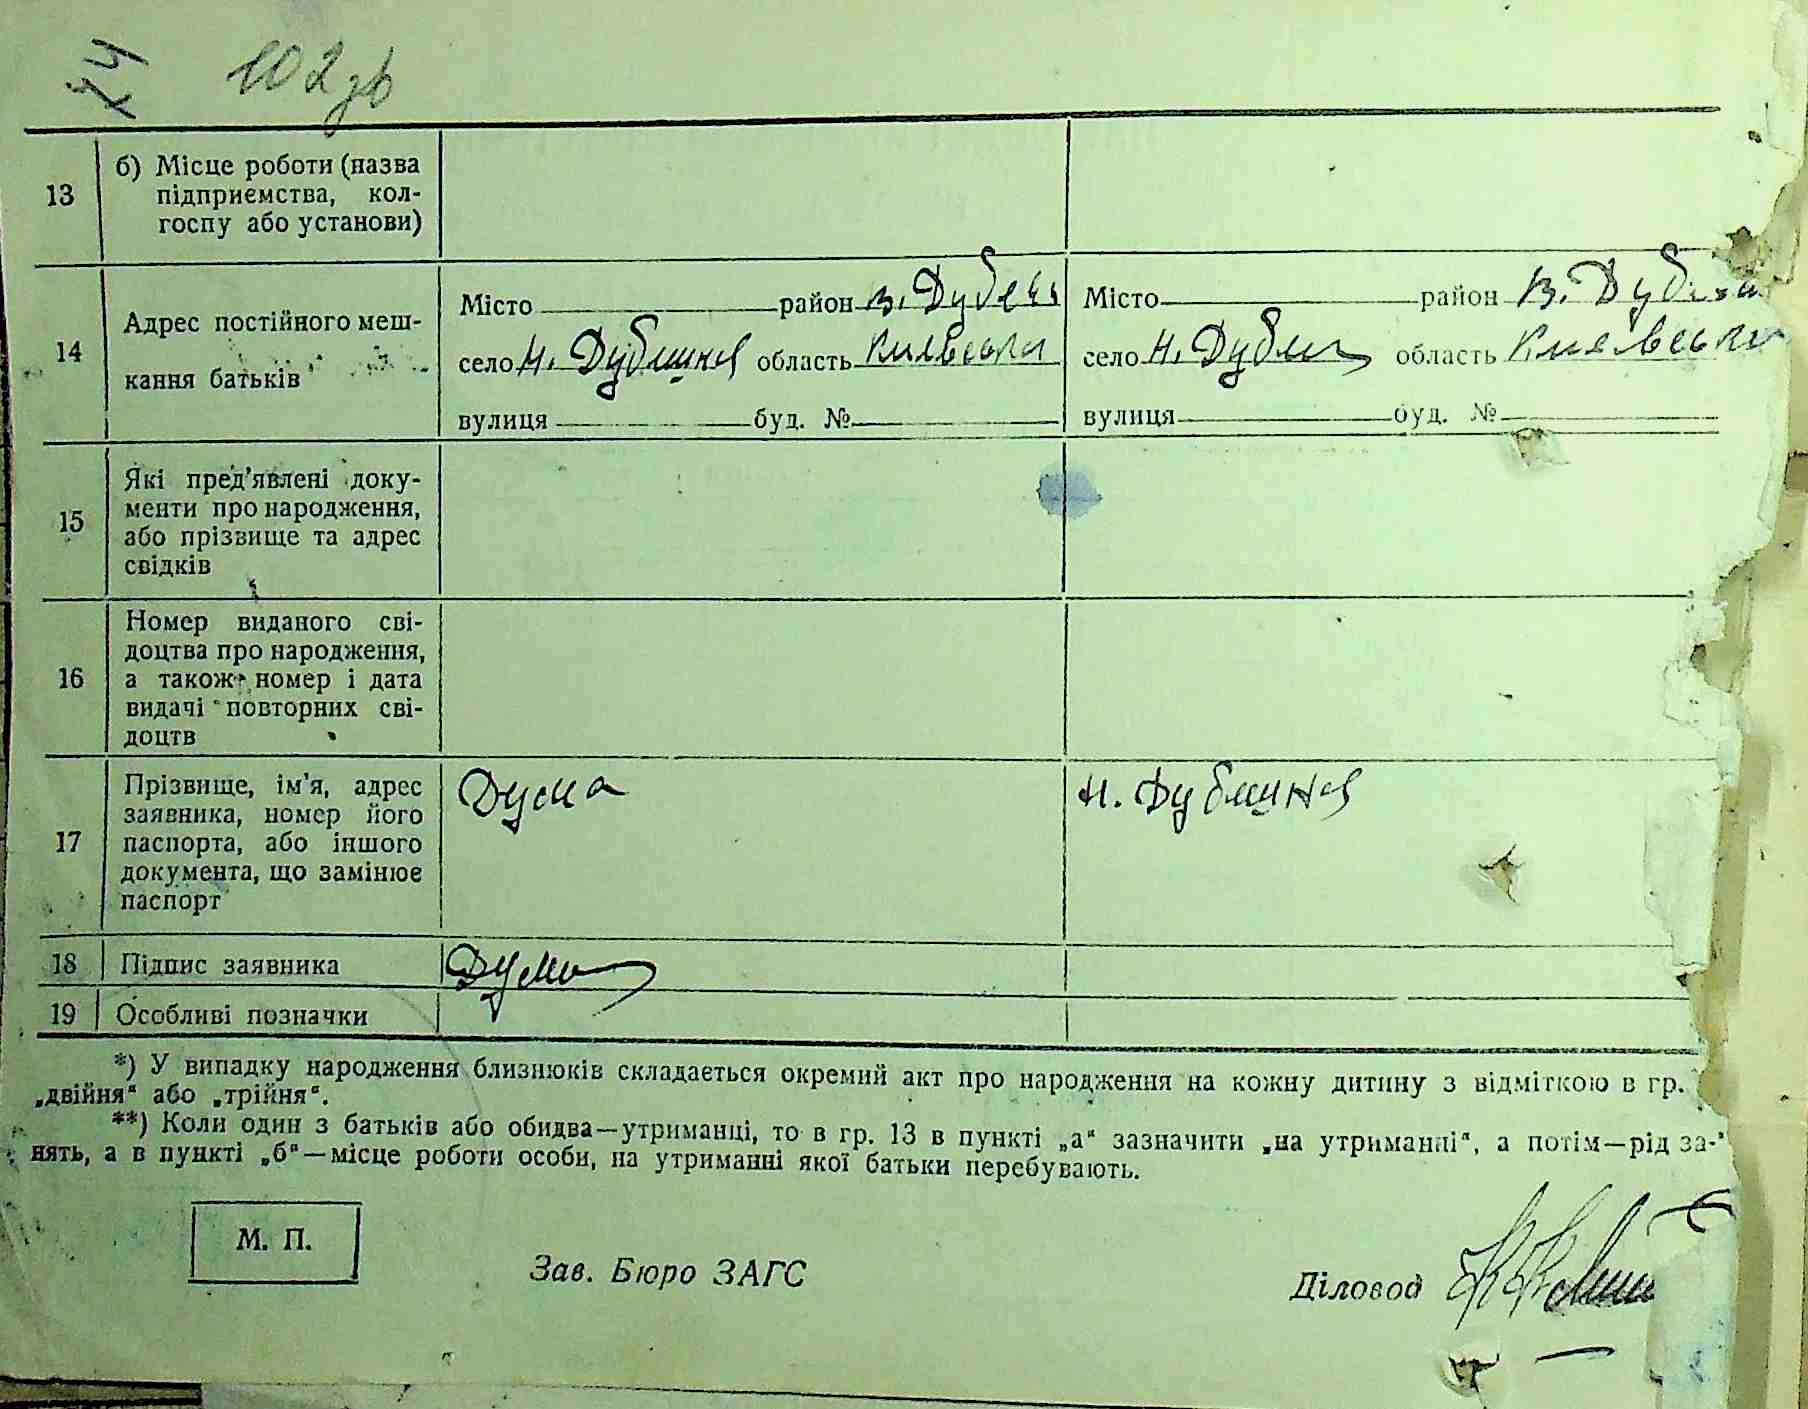 44 102 зв
13 б) Місце роботи (назва
підприємства, кол-
госпу або установи)
14 Адрес постійного меш-
кання батьків
Місто район В. Дубеч
село Н. Дубечня область Київська
вулиця буд. №
Місто район В. Дубеч
село Н. Дубеч область Київська
вулиця буд. №
15 Які пред'явлені доку-
менти про народження,
або прізвище та адрес
свідків
16 Номер виданого сві-
доцтва про народження,
а також номер і дата
видачі повторних сві-
доцтв
17 Прізвище, ім'я, адрес
заявника, номер його
паспорта, або іншого
документа, що замінює
паспорт
Дума Н. Дубечня
18 Підпис заявника Дума
19 Особливі позначки
*) У випадку народження близнюків складається окремий акт про народження на кожну дитину з відміткою в гр.
„двійня" або „трійня".
**) Коли один з батьків або обидва—утриманці, то в гр. 13 в пункті „а" зазначити „на утриманні", а потім—рід за-
нять, а в пункті „б"—місце роботи особи, на утриманні якої батьки перебувають.
М. П.
Зав. Бюро ЗАГС Діловод